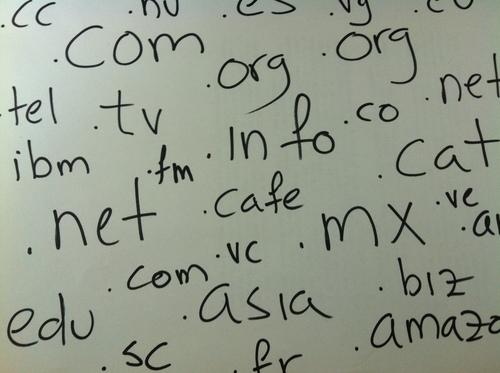 .cc .hu .es .vg
.com .org .org
.tel .tv .info .co .net
ibm .fm .cat
.net .cafe .mx .ve
.com .vc .biz
edu .asia
.sc .fr